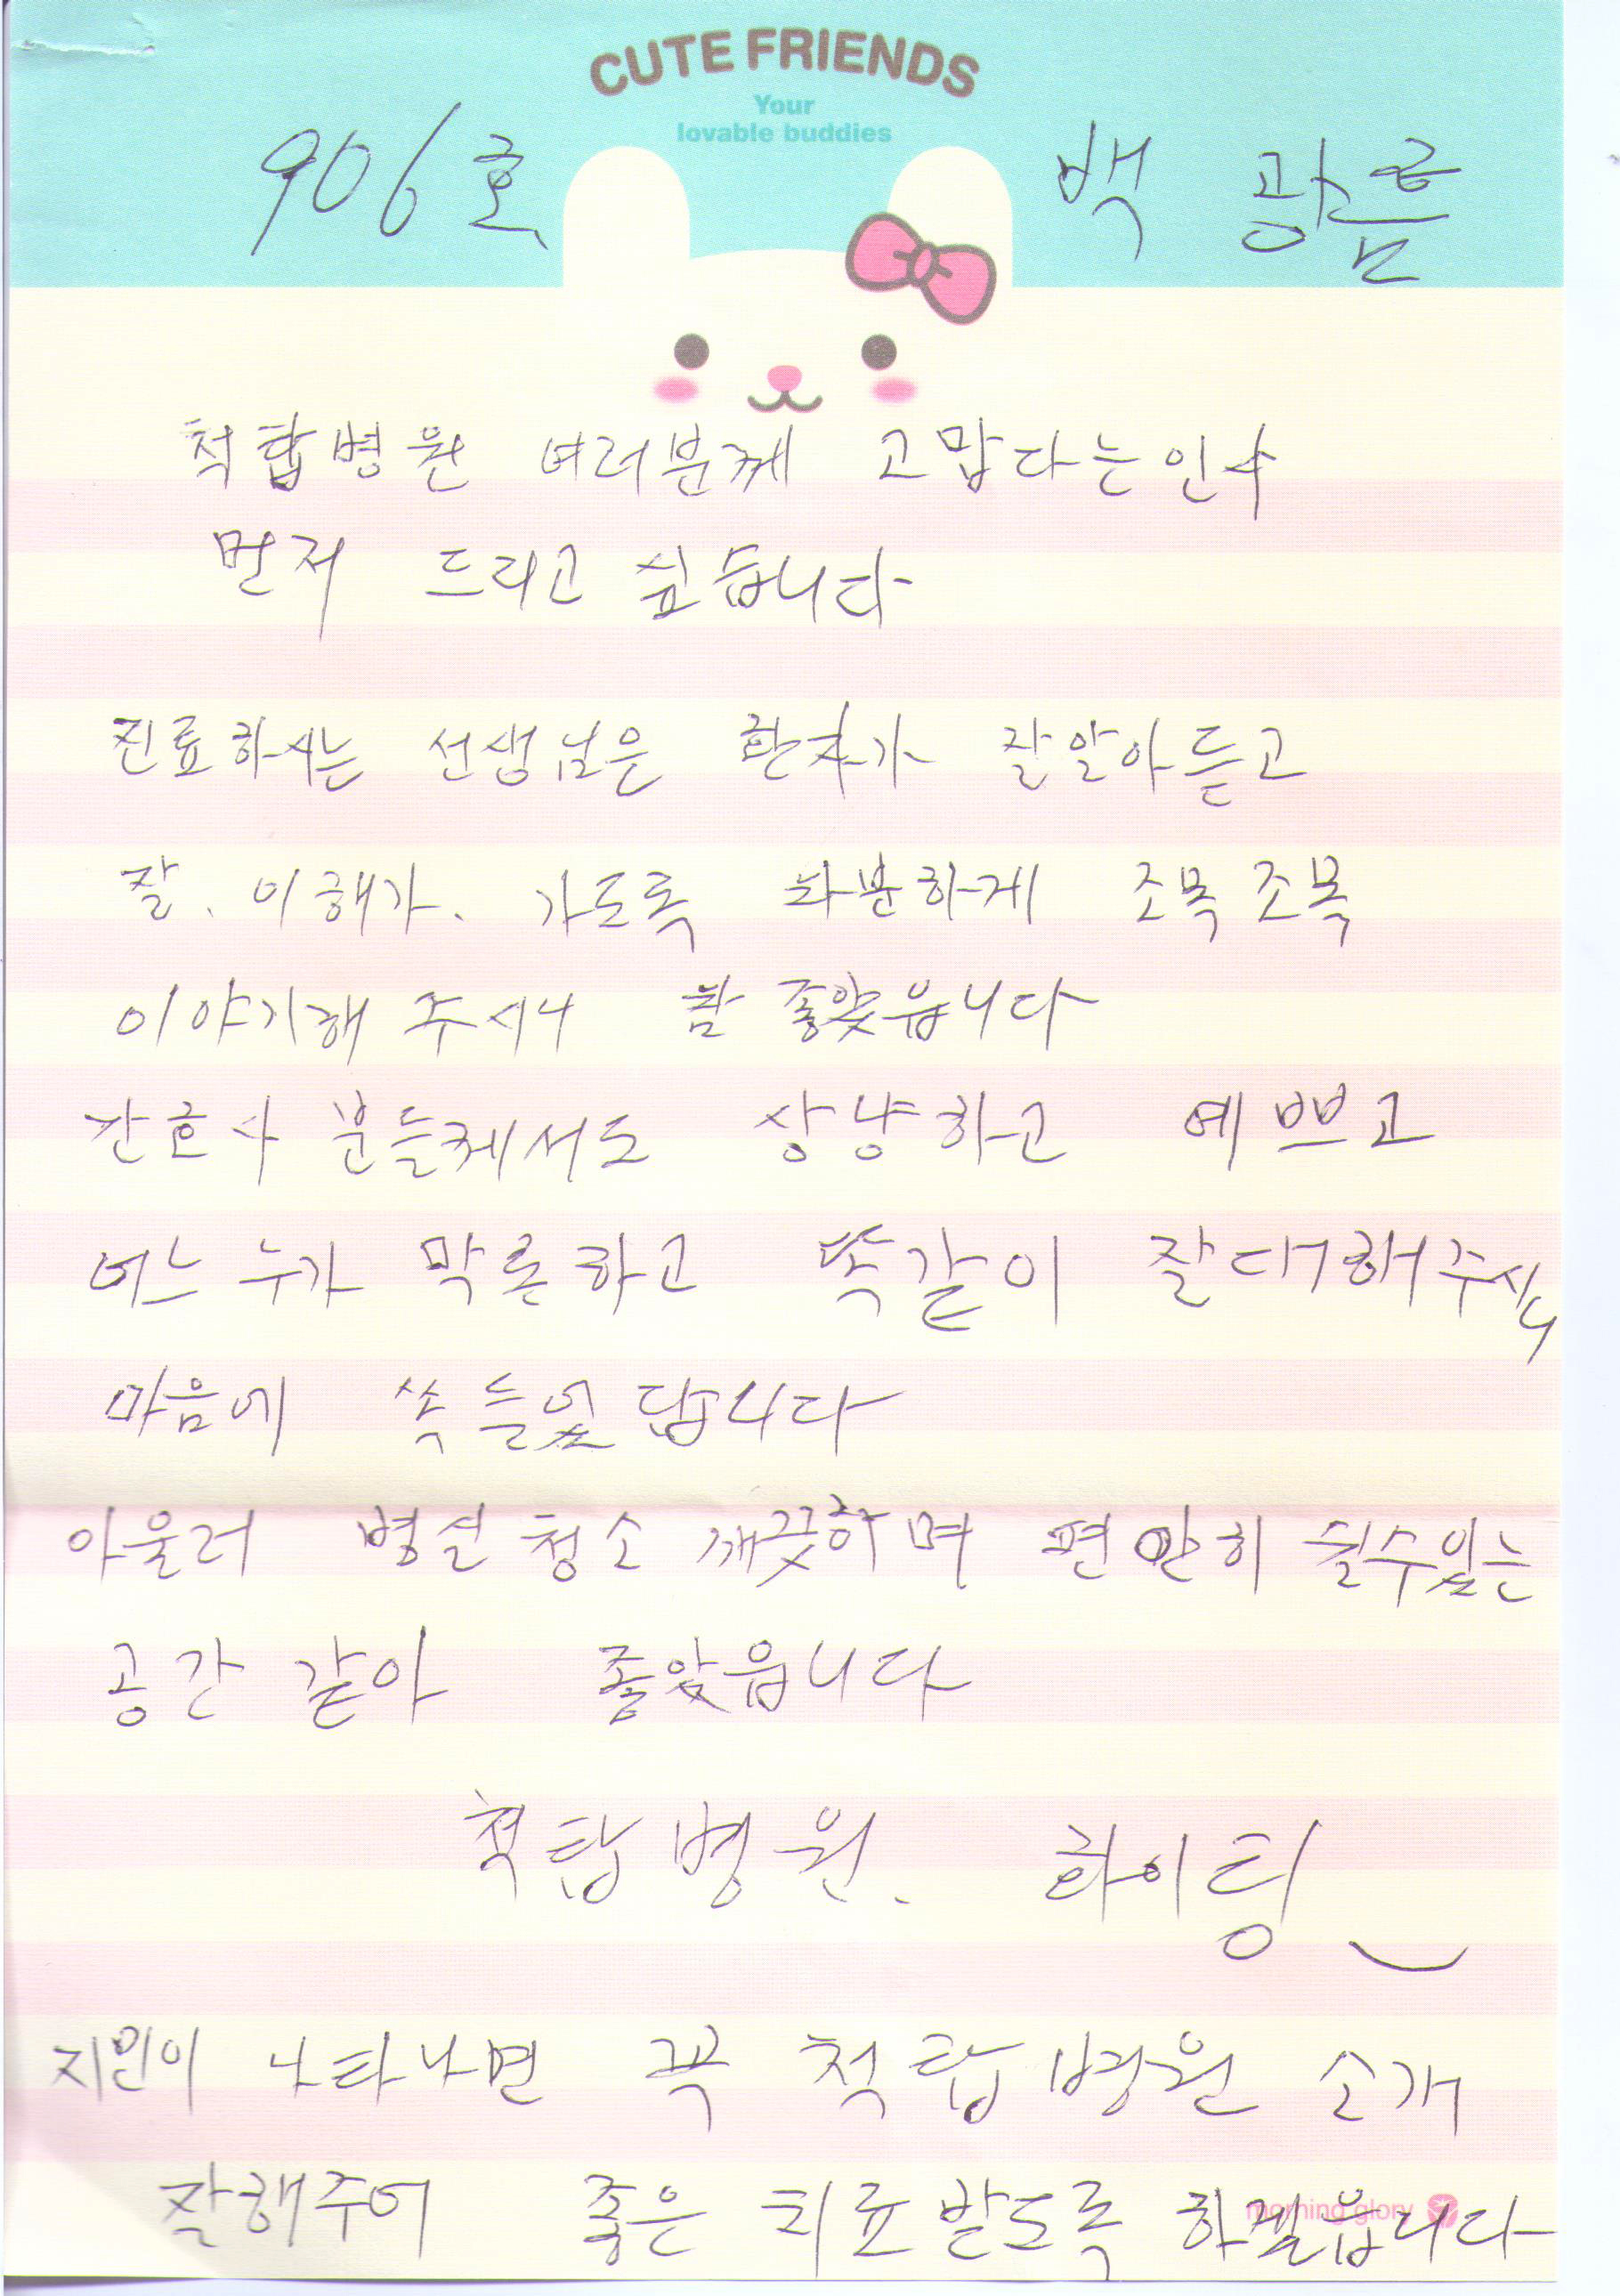 CUTE FRIENDS
Your
lovable buddies
906호 백 광흠
척탑병원 여러분께 고맙다는인사
먼저 드리고 싶습니다
진료하시는 선생님은 환자가 잘알아듣고
잘. 이해가. 가도록 차분하게 조목조목
이야기해 주시니 참 좋았읍니다
간호사 분들께서도 상냥하고 예쁘고
어느 누가 막론하고 똑같이 잘대해주시니
마음에 쏙 들었답니다
아울러 병실 청소 깨끗하며 편안히 쉴수있는
공간 같아 좋았읍니다
척탑병원. 화이팅
지인이 나타나면 꼭 척탑병원 소개
잘해주어 좋은 치료받도록 하겠읍니다
morning glory